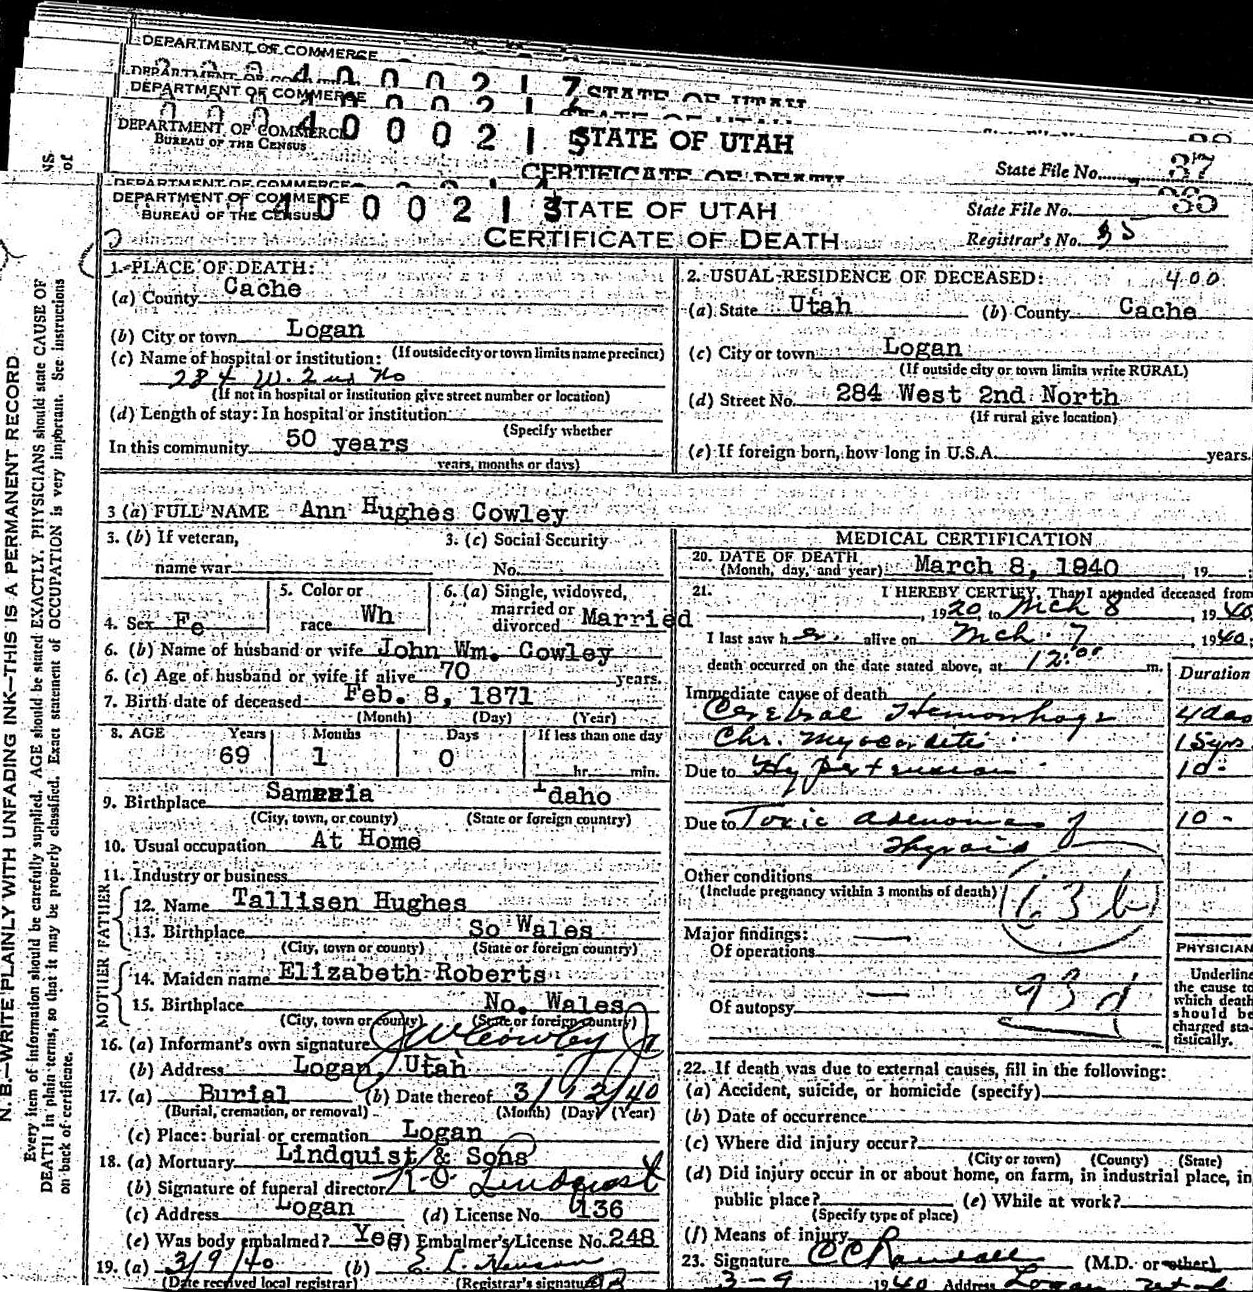 DEPARTMENT OF COMMERCE
4 0 0 0 2 1 7
DEPARTMENT OF COMMERCE
STATE OF UTAH
DEPARTMENT OF COMMERCE
BUREAU OF THE CENSUS
4 0 0 0 2 1 5
STATE OF UTAH
CERTIFICATE OF DEATH
State File No. 37
DEPARTMENT OF COMMERCE
DEPARTMENT OF COMMERCE
BUREAU OF THE CENSUS
4 0 0 0 2 1 3
STATE OF UTAH
CERTIFICATE OF DEATH
State File No. 35
Registrar's No. 35
N. B.—WRITE PLAINLY WITH UNFADING INK—THIS IS A PERMANENT RECORD
Every item of information should be carefully supplied. AGE should be stated EXACTLY. PHYSICIANS should state CAUSE OF
DEATH in plain terms, so that it may be properly classified. Exact statement of OCCUPATION is very important. See instructions
on back of certificate.
1. PLACE OF DEATH:
(a) County Cache
(b) City or town Logan
(If outside city or town limits name precinct)
(c) Name of hospital or institution:
284 W. 2nd No
(If not in hospital or institution give street number or location)
(d) Length of stay: In hospital or institution
(Specify whether
In this community 50 years
years, months or days)
2. USUAL RESIDENCE OF DECEASED: 400
(a) State Utah (b) County Cache
(c) City or town Logan
(If outside city or town limits write RURAL)
(d) Street No. 284 West 2nd North
(If rural give location)
(e) If foreign born, how long in U.S.A. years.
3 (a) FULL NAME Ann Hughes Cowley
3. (b) If veteran,
name war
3. (c) Social Security
No.
4. Sex Fe
5. Color or
race Wh
6. (a) Single, widowed,
married or
divorced Married
6. (b) Name of husband or wife John Wm. Cowley
6. (c) Age of husband or wife if alive 70 years.
7. Birth date of deceased Feb. 8, 1871
(Month) (Day) (Year)
8. AGE Years Months Days If less than one day
69 1 0
hr. min.
9. Birthplace Samaria Idaho
(City, town, or county) (State or foreign country)
10. Usual occupation At Home
11. Industry or business
FATHER
12. Name Tallisen Hughes
13. Birthplace So Wales
(City, town or county) (State or foreign country)
MOTHER
14. Maiden name Elizabeth Roberts
15. Birthplace No. Wales
(City, town or county) (State or foreign country)
16. (a) Informant's own signature J W Cowley Jr
(b) Address Logan, Utah
17. (a) Burial (b) Date thereof 3/12/40
(Burial, cremation, or removal) (Month) (Day) (Year)
(c) Place: burial or cremation Logan
18. (a) Mortuary Lindquist & Sons
(b) Signature of funeral director Lindquist
(c) Address Logan (d) License No. 136
(e) Was body embalmed? Yes (f) Embalmer's License No. 248
19. (a) 3/9/40 (b)
(Date received local registrar) (Registrar's signature)
MEDICAL CERTIFICATION
20. DATE OF DEATH
(Month, day, and year) March 8, 1940, 19
21. I HEREBY CERTIFY, That I attended deceased from
, 1920, to Mch 8, 1940,
I last saw her alive on Mch. 7, 1940,
death occurred on the date stated above, at 12:00 m.
Duration
Immediate cause of death
Cerebral Hemorrhage 4 das
Chr. Myocarditis 15 yrs
Due to Hypertension 10 -
Due to Toxic Adenoma of 10 -
Thyroid
Other conditions
(Include pregnancy within 3 months of death)
63 b
Major findings:
Of operations
93 d
Of autopsy
PHYSICIAN
Underline
the cause to
which death
should be
charged sta-
tistically.
22. If death was due to external causes, fill in the following:
(a) Accident, suicide, or homicide (specify)
(b) Date of occurrence
(c) Where did injury occur?
(City or town) (County) (State)
(d) Did injury occur in or about home, on farm, in industrial place, in
public place? (e) While at work?
(Specify type of place)
(f) Means of injury
23. Signature (M.D. or other)
3-9 1940 Address Logan Utah